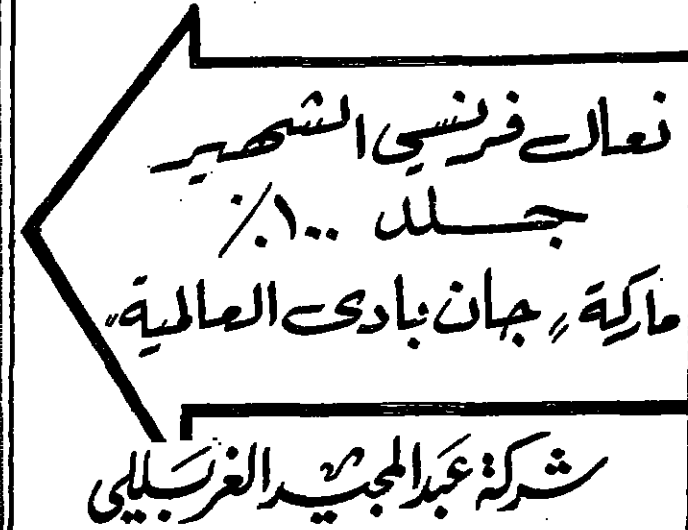 نعال فرنسي الشهير
جلد ١٠٠٪
ماركة "جان بادى العالمية"
شركة عبد المجيد الغربللي